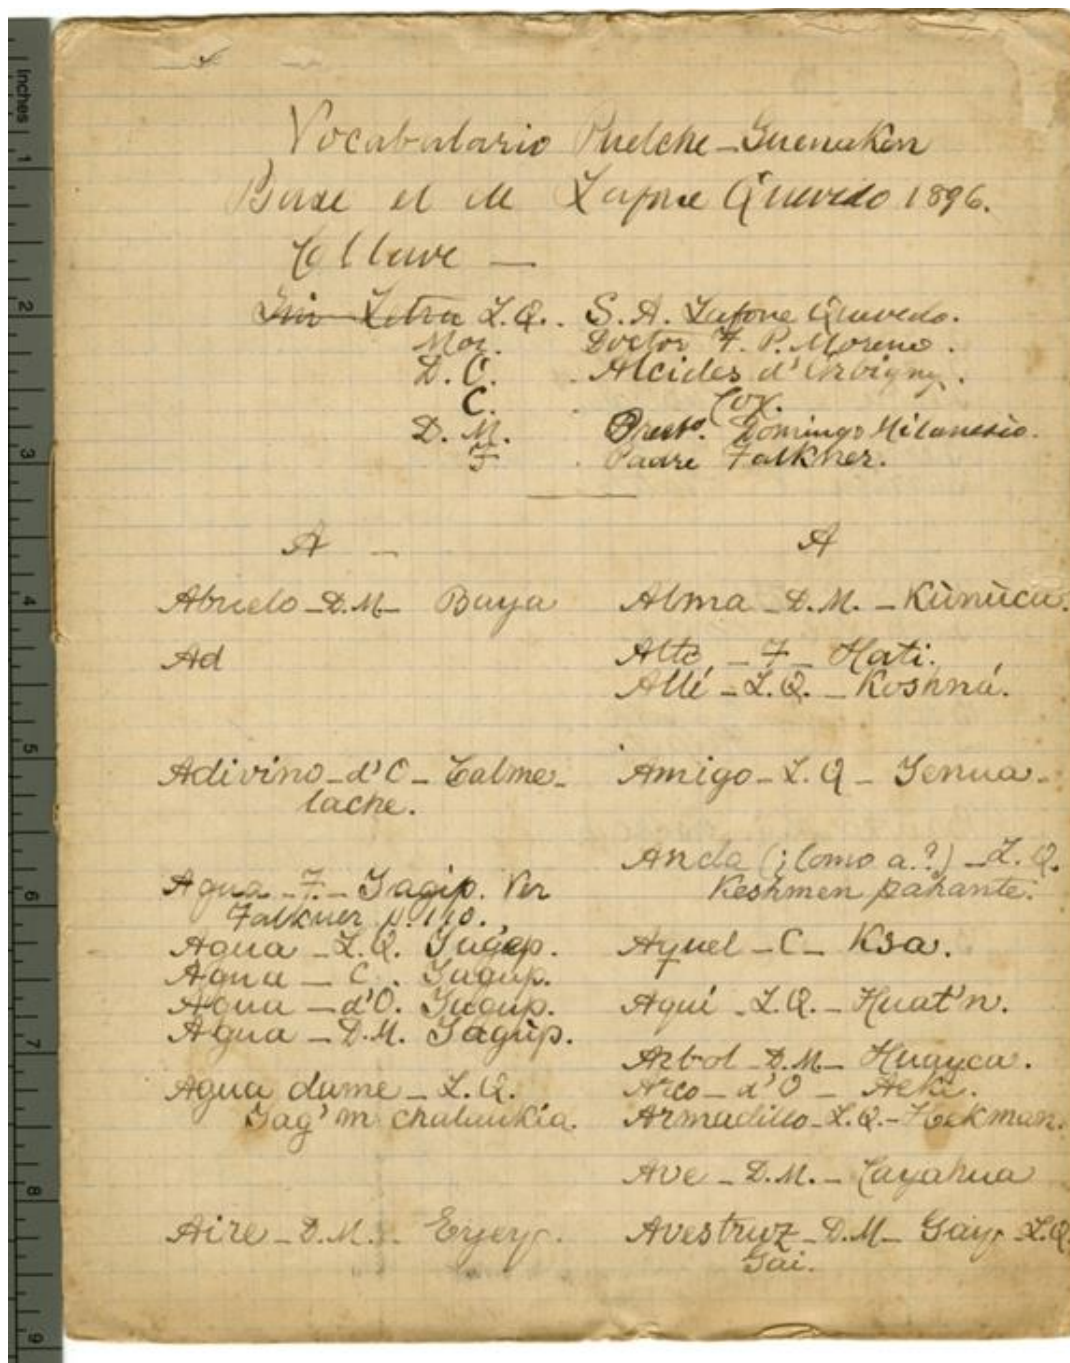 Inches
1
2
3
4
5
6
7
8
9
Vocabulario Puelche-Guenaken
Base el de Lafone Quevedo 1896.
Llave —
Sin Letra L.Q. . S. A. Lafone Quevedo.
Mor. Doctor F. P. Moreno.
D. O. . Alcides d'Orbigny.
C. . Cox.
D. M. Presbo. Domingo Milanesio.
F . Padre Falkner.
A —
Abuelo - D.M. - Buya
Ad
Adivino - d'O - Calme-
lache.
Agua - F. - Yagip. Ver
Falkner p. 110.
Agua - L.Q. Yagep.
Agua - C. Yagup.
Agua - d'O. Yagup.
Agua - D.M. Yagùp.
Agua dame - L.Q.
Yag'm chalaukia.
Aire - D.M. - Eyey.
A
Alma - D.M. - Kùnùcu.
Alto - F - Hati.
Allí - L.Q. - Koshná.
Amigo - L.Q - Yenua.
Anda (¿Como a.?) - L.Q.
Keshmen pahante.
Aquel - C - Ksa.
Aquí - L.Q. - Huat'n.
Arbol - D.M. - Huayca.
Arco - d'O - Aeke.
Armadillo - L.Q. - Hekman.
Ave - D.M. - Cayahua
Avestruz - D.M - Gay - L.Q.
Gai.